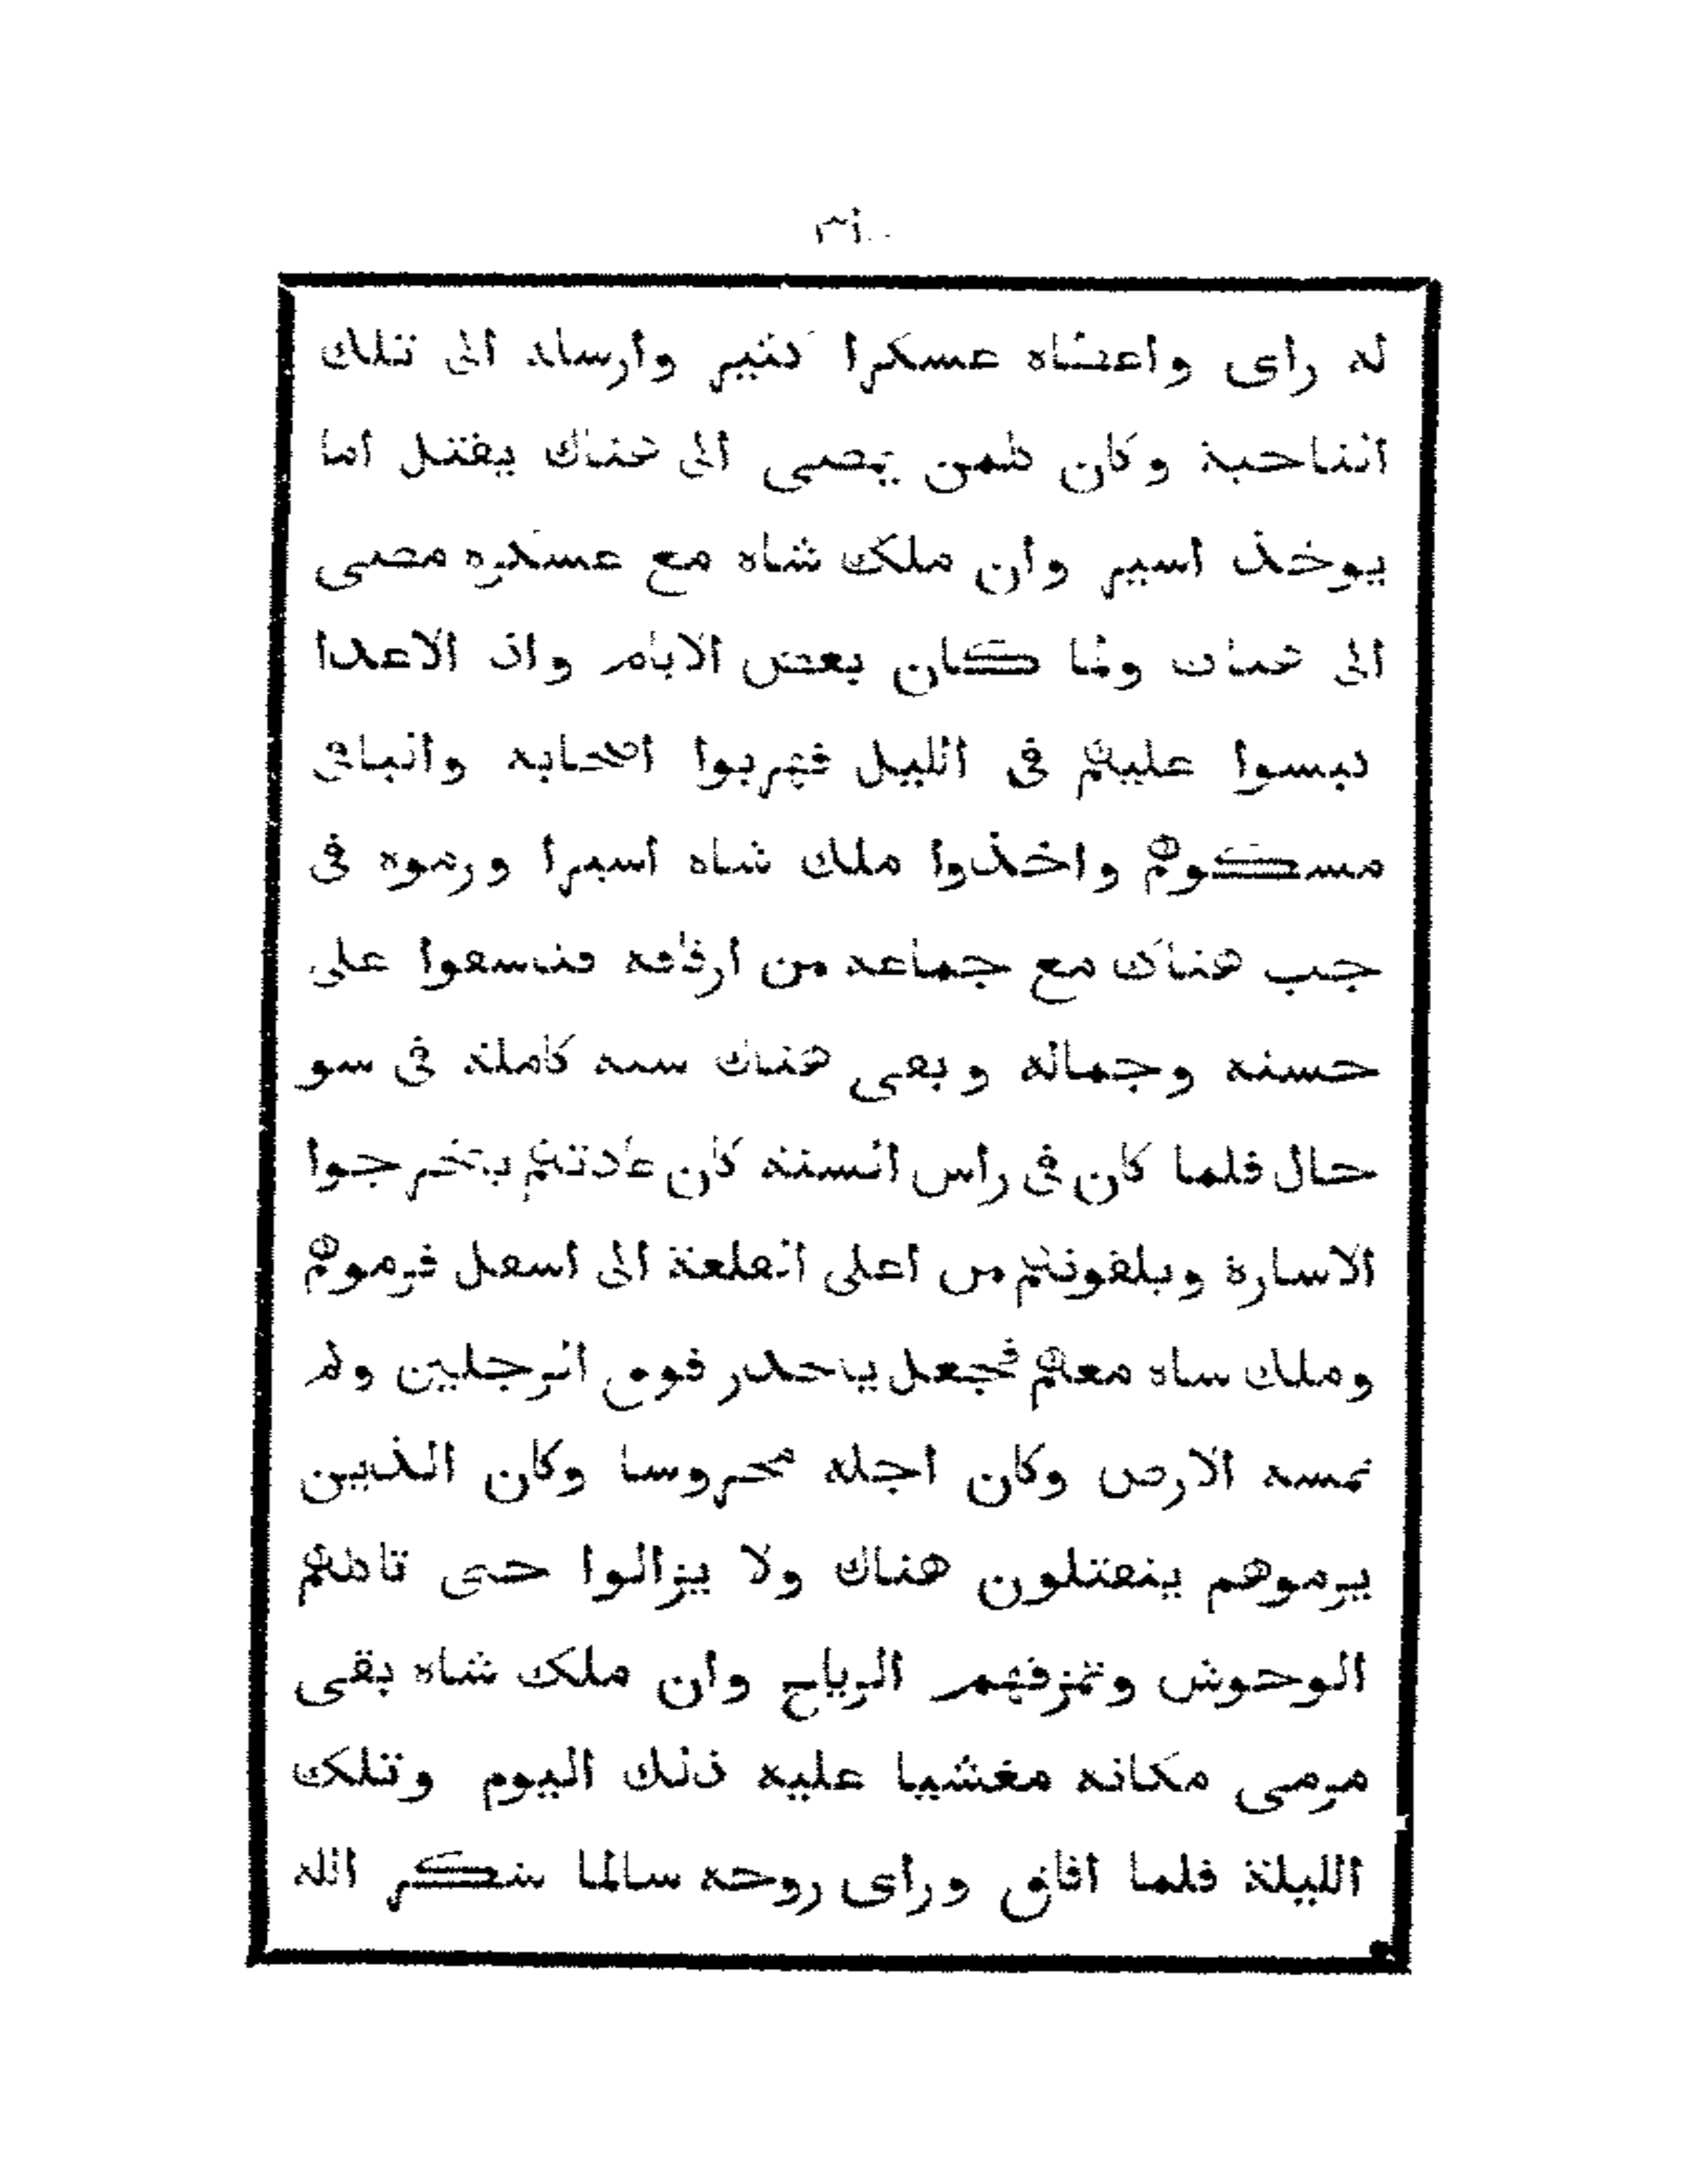 له راى واعطاه عسكرا كثير وارسله الى تلك
الناحية وكان كلمن يمضى الى هناك يقتل اما
يوخذ اسير وان ملك شاه مع عسكره مضى
الى هناك ولما كان بعض الايام واذ الاعدا
كبسوا عليهم فى الليل فهربوا اصحابه والباقى
مسكوهم واخذوا ملك شاه اسيرا ورموه فى
جب هناك مع جماعه من ارفاقه فتاسفوا على
حسنه وجماله وبقى هناك سنه كاملة فى سو
حال فلما كان فى راس السنة كان عادتهم يتخرجوا
الاسارة ويلقونهم من اعلى القلعة الى اسفل فرموهم
وملك شاه معهم فجعل ينحدر فوق الرجلين ولم
تمسه الارض وكان اجله محروسا وكان الذين
يرموهم ينقتلون هناك ولا يزالوا حتى تاكلهم
الوحوش وتمزقهم الرياح وان ملك شاه بقى
مرمى مكانه مغشيا عليه ذلك اليوم وتلك
الليلة فلما افاق وراى روحه سالما شكر الله